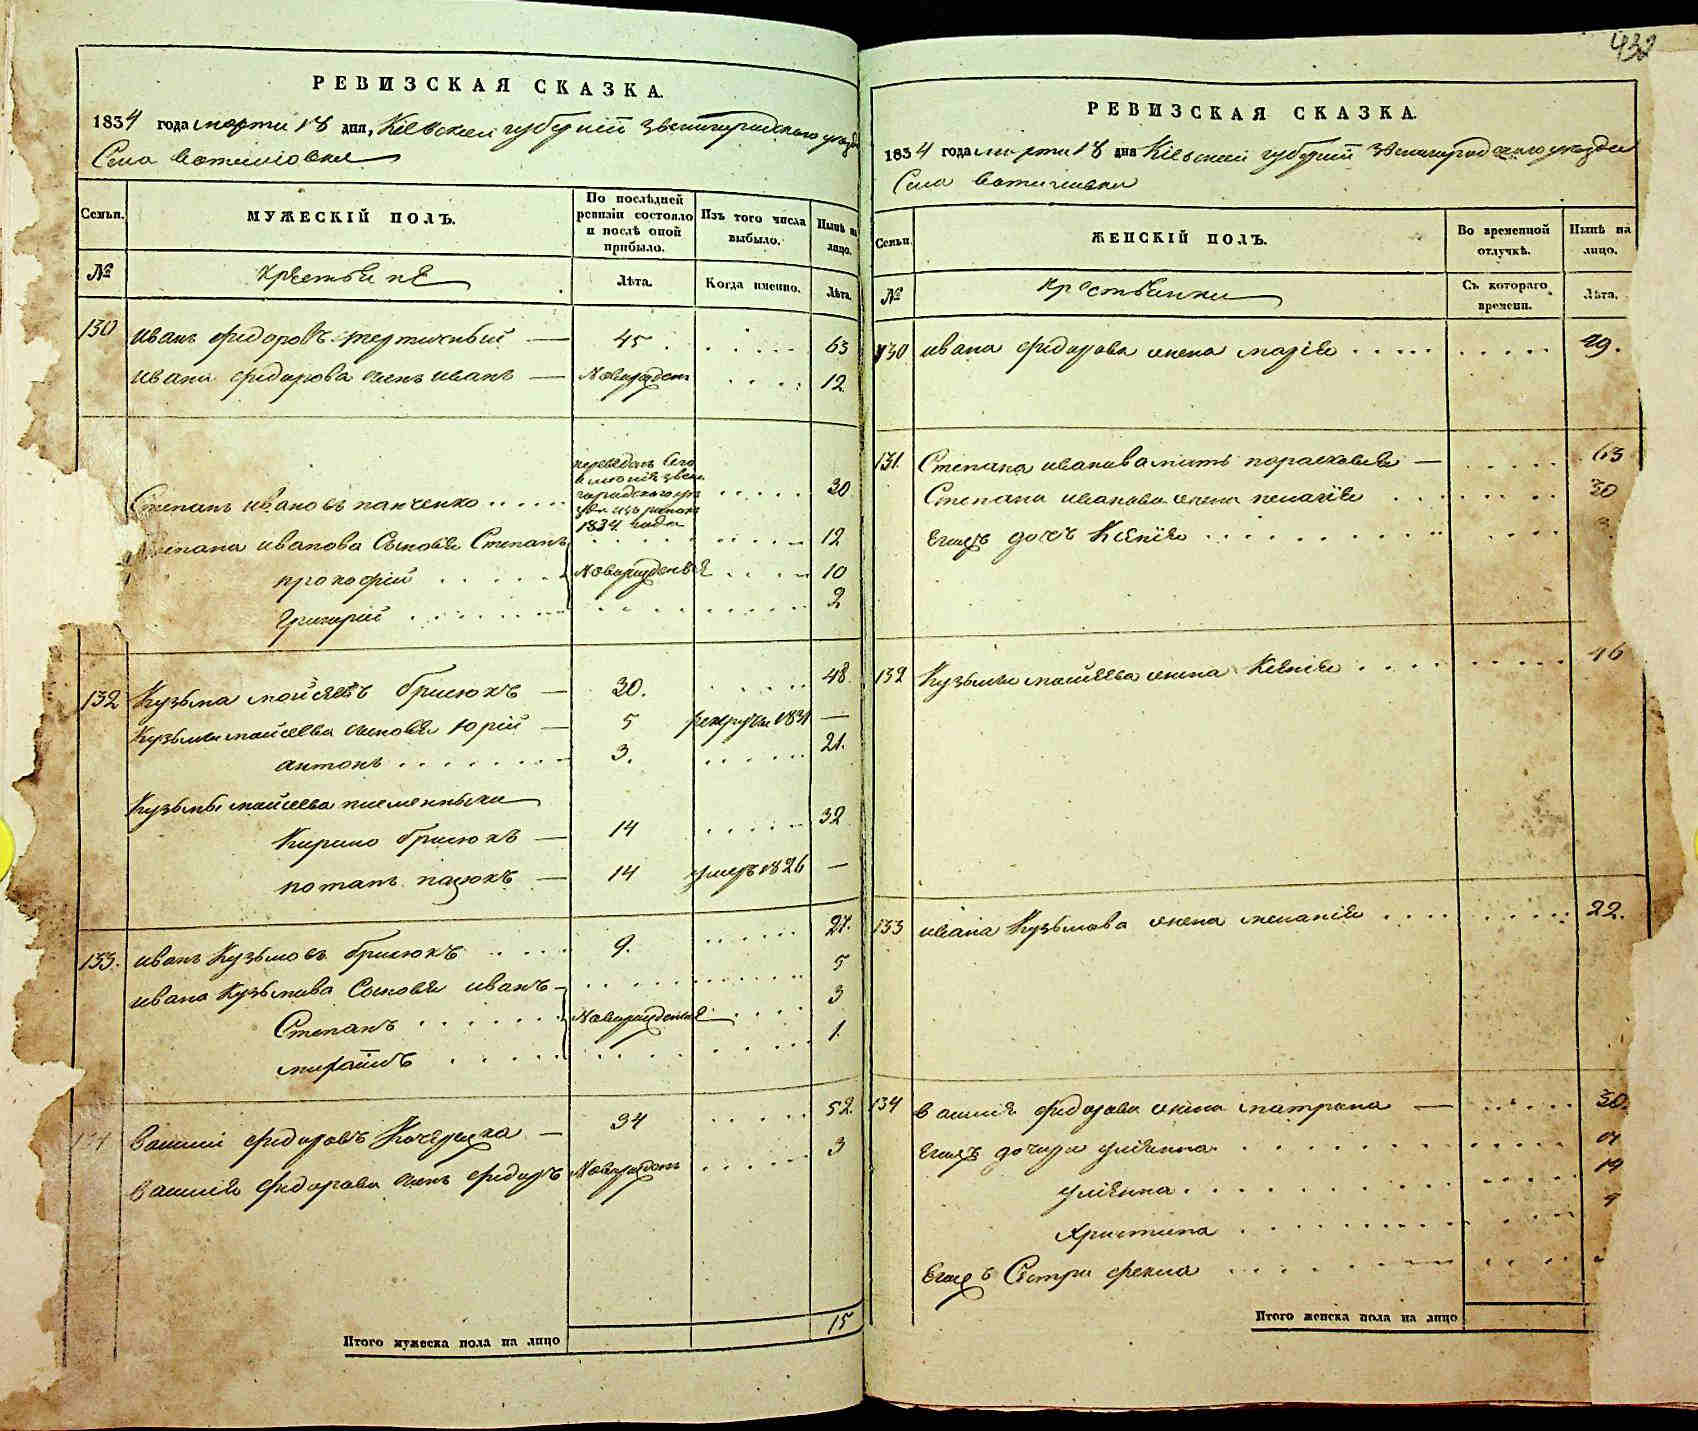 432
РЕВИЗСКАЯ СКАЗКА.
1834 года марта 18 дня, Кіевской губерніи Звенигородского уезда
Села
Семьи.
МУЖЕСКІЙ ПОЛЪ.
По послѣдней ревизіи состояло и послѣ оной прибыло.
Изъ того числа выбыло.
Нынѣ на лицо.
№
крестьяне
Лѣта.
Когда именно.
Лѣта.
130 иванъ федоровъ — 45 63
ивана федорова сынъ иванъ — Новорожденъ 12
Степанъ ивановъ панченко 30
переведенъ
1834 года
Степана иванова Сыновья Степанъ 12
прокофій Новорожденныя 10
Григорій 2
132 Кузьма мойсеевъ брилюкъ — 30. 48.
Кузьмы мойсеева сыновья Юрій — 5 рекрутъ 1831 —
антонъ 3. 21.
Кузьмы мойсеева племянники
Кирило брилюкъ — 14 32
потапъ — 14 умеръ 1826 —
133. иванъ Кузьмовъ брилюкъ 9. 27.
ивана Кузьмова Сыновья иванъ 5
Степанъ Новорожденныя 3
1.
134 василій федоровъ — 34 52.
василія федорова сынъ федоръ Новорожденъ 3
Итого мужеска пола на лицо 15
РЕВИЗСКАЯ СКАЗКА.
1834 года марта 18 дня Кіевской губерніи Звенигородского уезда
Села
Семьи
ЖЕНСКІЙ ПОЛЪ.
Во временной отлучкѣ.
Нынѣ на лицо.
№
крестьянки
Съ котораго времени.
Лѣта.
130 ивана федорова жена марія 29.
131. Степана иванова мать парасковія — 63
Степана иванова жена пелагія 30
Егожъ дочь Ксенія
132 Кузьмы мойсеева жена Ксенія 46
133 ивана Кузьмова жена меланія 22.
134 василія федорова жена матрона — 50.
Егожъ дочери уліянна
уліянна 19
Христина
Егожъ Сестра фекла
Итого женска пола на лицо